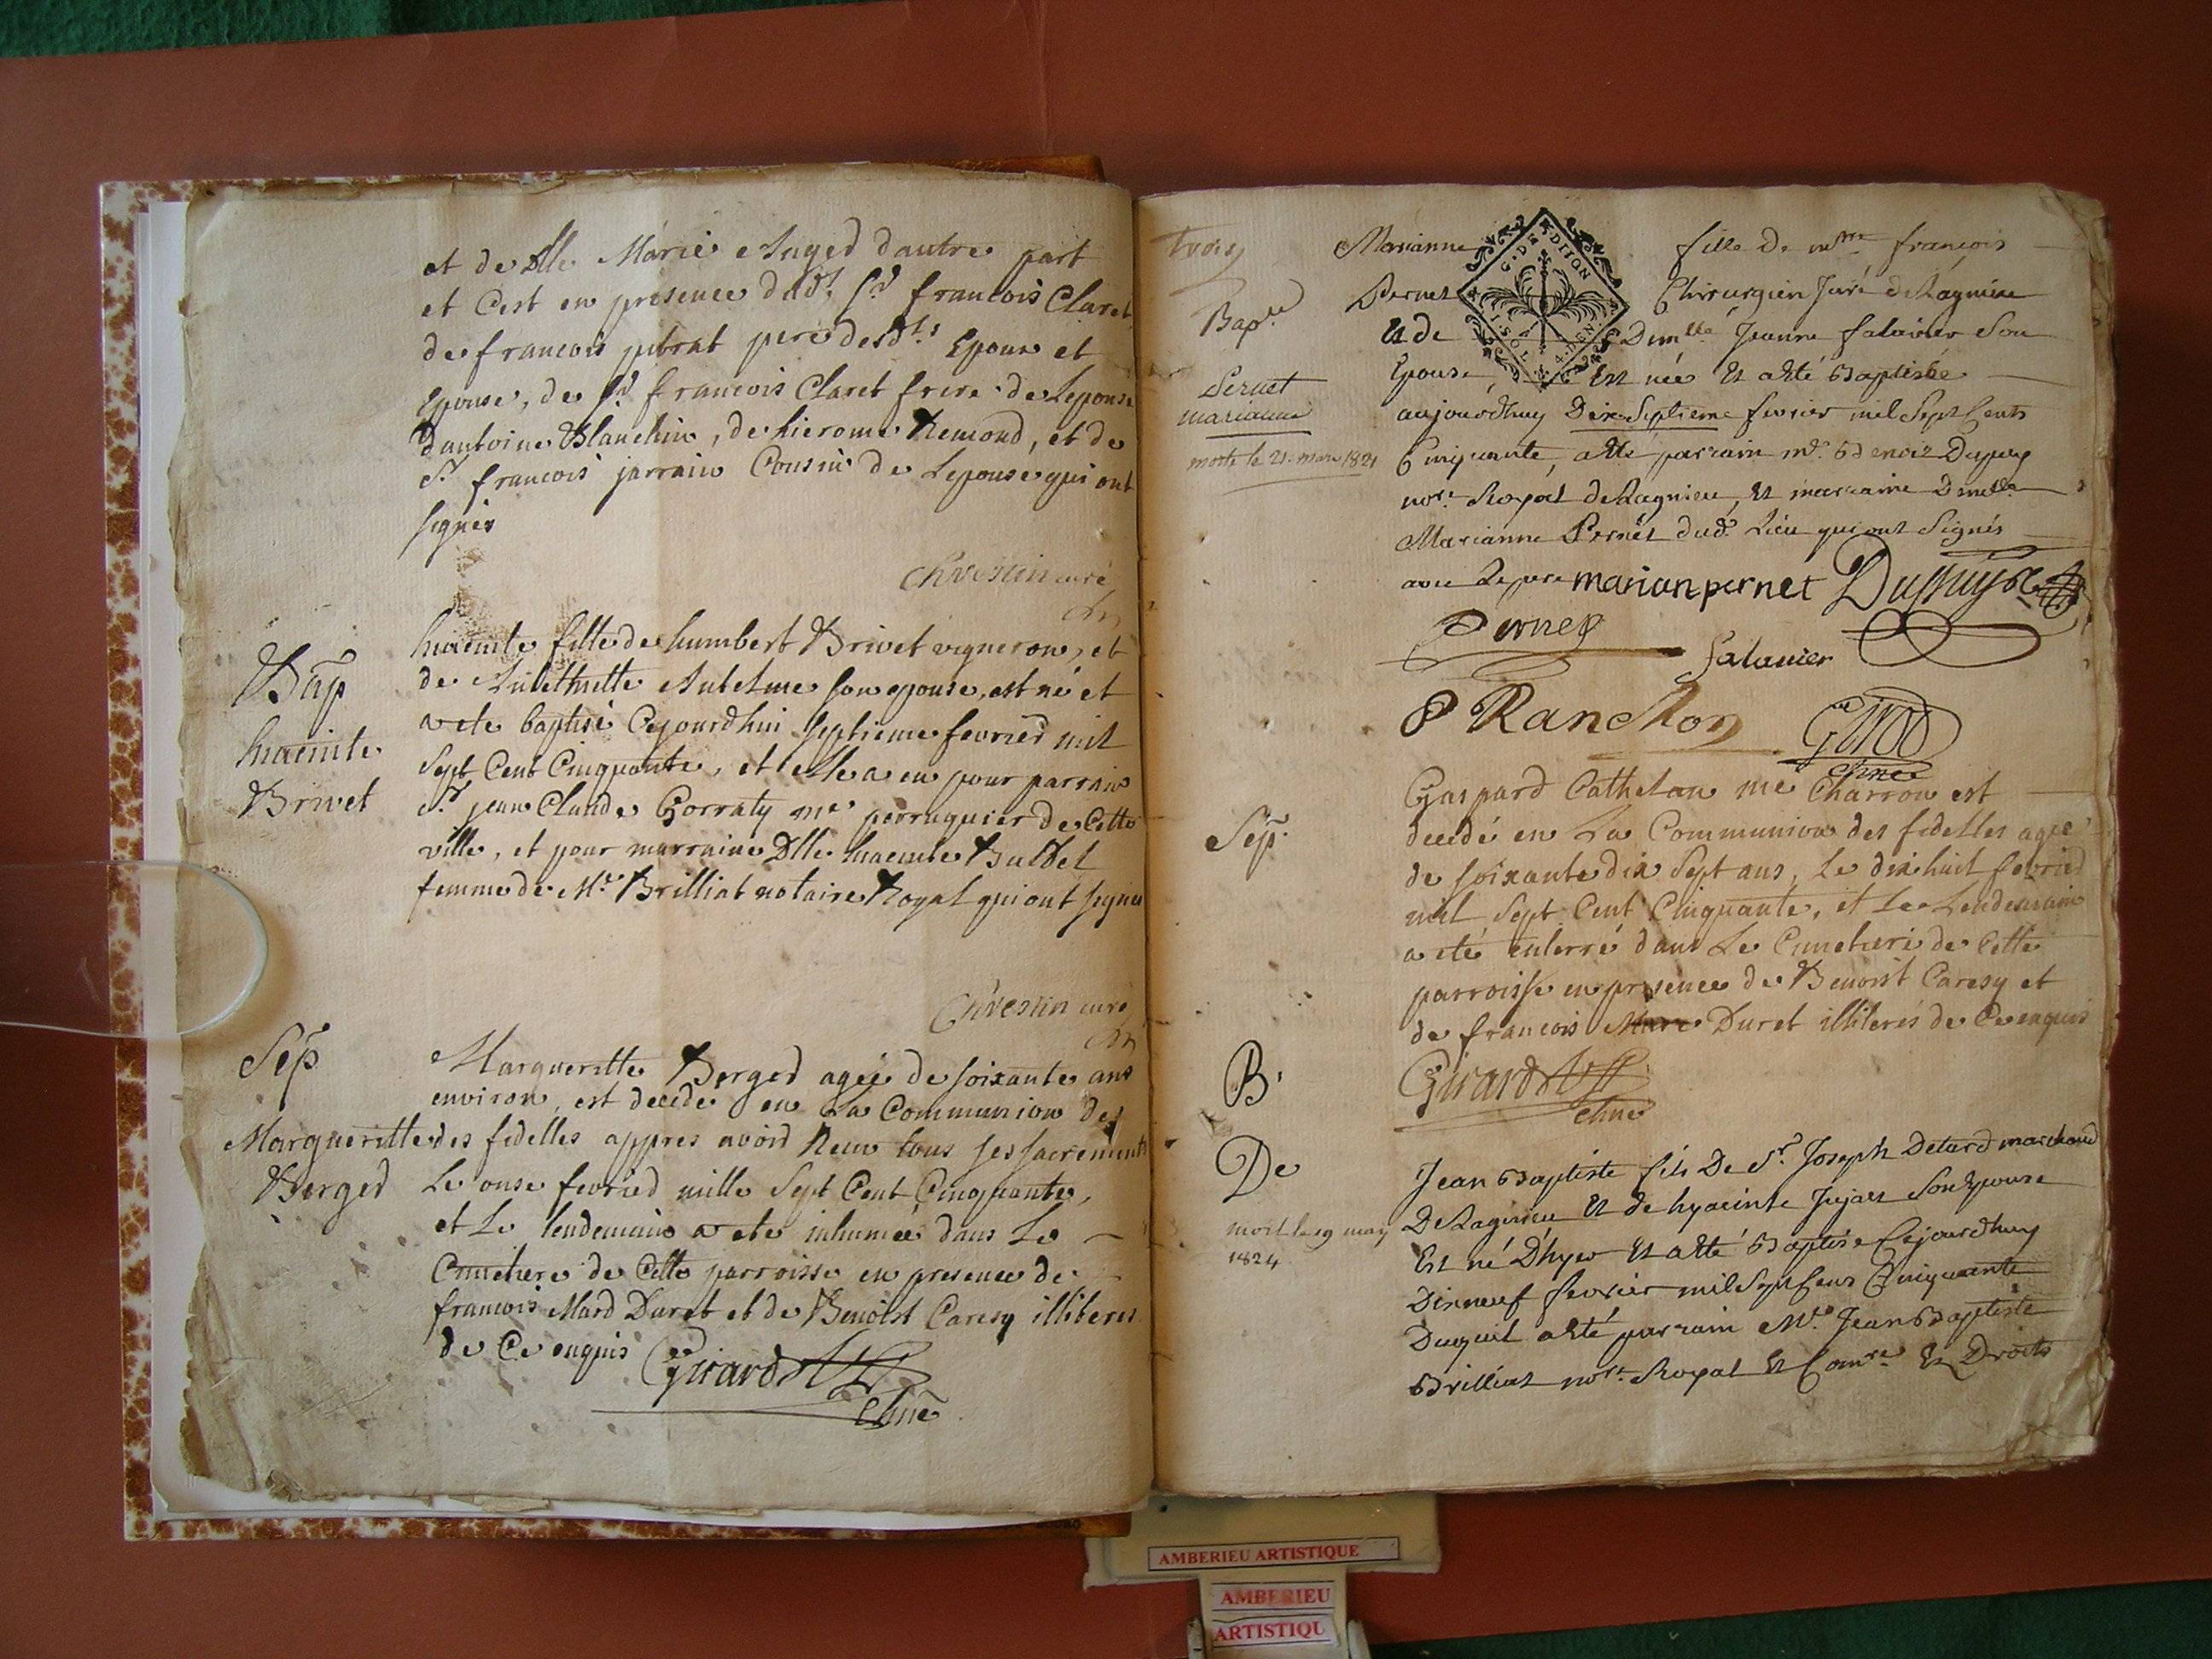 et de Dlle Marie Auged dautre part
et cest en presence dudt Sr francois Claret
de francois pitrat pere desdts Epoux et
Epouse, de Sr francois Claret frere de Lepouse
dantoine Blanchin, de hierome Remond, et de
Sr francois jarrain Cousin de Lepouse qui ont
signés
Chrestin curé
Bap
hiacinte
Brivet
hiacinte fille de humbert Brivet vigneron, et
de Antelme son epouse, est né et
a ete baptisé Cejourdhui septieme fevried mil
Sept Cent Cinquante, et elle a eu pour parrain
Sr jean Claude Gorraty me perruquier de Cette
ville, et pour marraine Dlle hiacinte Buldel
femme de Me Brilliat notaire Royal qui ont signé
Chrestin curé
Sep
Margueritte
Berged
Margueritte Berged agée de soixante ans
environ, est decedé en La Communion des
des fidelles appres avoid Receu tous ses sacrements
Le onse fevried mille Sept Cent Cinquante,
et Le lendemain a ete inhumée dans Le
Cimetiere de Cette parroisse en presence de
francois Mard Duret et de Benoist Caresy illiteres
de Ce enquis
Girard
trois
Bapte
Pernet
marianne
morte le 21 mars 1821
Marianne fille de mtre françois
Pernet Chirurgien Juré de Lagnieu
G. DE DIJON
Et de Demlle Jeanne Salavier Son
Epouse, Est née Et a Eté Baptisée
aujourdhuy Dix Septieme fevrier mil Sept Cents
Cinquante, a Eté parrain me Benoit Dupuy
nore Royal de Lagnieu, Et marraine Demlle
Marianne Pernet dud. Lieu qui ont Signés
avec Le pere marianpernet Dupuy
Pernet
Salavier
P Ranchon
Sep.
Gaspard Cathelan me Charron est
decedé en La Communion des fidelles agee
de soixante dix Sept ans, Le dix huit fevried
mil Sept Cent Cinquante, et Le Lendemain
a eté enterré dans Le Cimetiere de Cette
parroisse en presence de Benoist Caresy et
de francois Duret illiterés de Ce enquis
Girard
B.
De
mort le 19 may
1824
Jean Baptiste fils De Sr. Joseph Detard marchand
De Lagnieu Et de hyacinte Jujat Son Epouse
Est né D'hyer Et a Eté Baptisé Cejourdhuy
Dixneuf fevrier mil Sept Cens Cinquante
Duquel a Eté parrain Me. Jean Baptiste
Brilliat nore. Royal Et Comre Et Droits
AMBERIEU ARTISTIQUE
AMBERIEU
ARTISTIQU